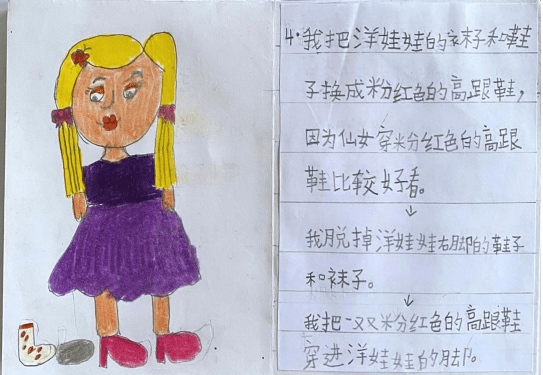 4.我把洋娃娃的袜子和鞋
子换成粉红色的高跟鞋，
因为仙女穿粉红色的高跟
鞋比较好看。
↓
我脱掉洋娃娃右脚的鞋子
和袜子。
↓
我把一双粉红色的高跟鞋
穿进洋娃娃的脚。